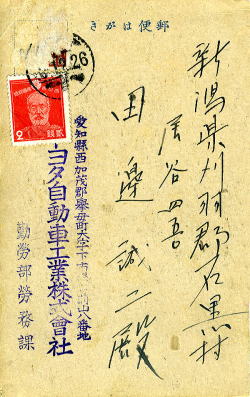 郵便はがき
10.26
2
新潟県刈羽郡石黒村
居谷四吾
田邉誠二殿
愛知縣西加茂郡擧母町大字下市場
八番地
トヨタ自動車工業株式會社
勤勞部勞務課